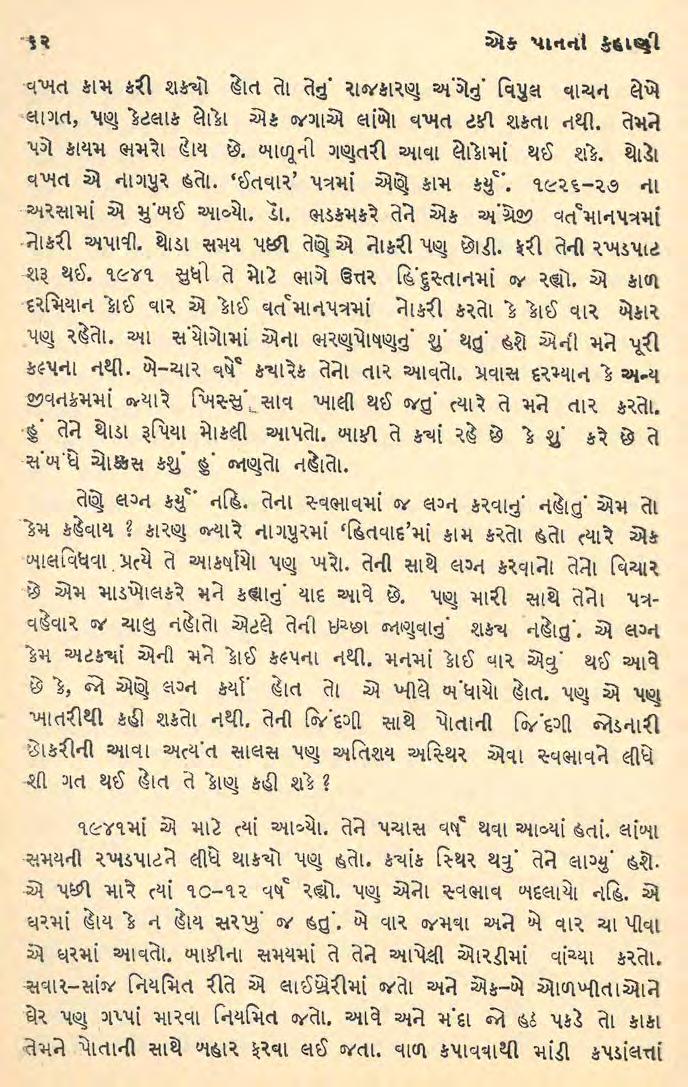 ૬૨ એક પાનની કહાણી
વખત કામ કરી શક્યો હોત તો તેનું રાજકારણ અંગેનું વિપુલ વાચન લેખે
લાગત, પણ કેટલાક લોકો એક જગાએ લાંબો વખત ટકી શકતા નથી. તેમને
પગે કાયમ ભમરો હોય છે. બાળૂની ગણતરી આવા લોકોમાં થઈ શકે. થોડો
વખત એ નાગપુર હતો. ‘ઈતવાર’ પત્રમાં એણે કામ કર્યું. ૧૯૨૬-૨૭ ના
અરસામાં એ મુંબઈ આવ્યો. ડૉ. ભડકમકરે તેને એક અંગ્રેજી વર્તમાનપત્રમાં
નોકરી અપાવી. થોડા સમય પછી તેણે એ નોકરી પણ છોડી. ફરી તેની રખડપાટ
શરૂ થઈ. ૧૯૪૧ સુધી તે મોટે ભાગે ઉત્તર હિંદુસ્તાનમાં જ રહ્યો. એ કાળ
દરમિયાન કોઈ વાર એ કોઈ વર્તમાનપત્રમાં નોકરી કરતો કે કોઈ વાર બેકાર
પણ રહેતો. આ સંયોગોમાં એના ભરણપોષણનું શું થતું હશે એની મને પૂરી
કલ્પના નથી. બે-ચાર વર્ષે ક્યારેક તેનો તાર આવતો. પ્રવાસ દરમ્યાન કે અન્ય
જીવનક્રમમાં જ્યારે ખિસ્સું સાવ ખાલી થઈ જતું ત્યારે તે મને તાર કરતો.
હું તેને થોડા રૂપિયા મોકલી આપતો. બાકી તે ક્યાં રહે છે કે શું કરે છે તે
સંબંધે ચોક્કસ કશું હું જાણતો નહોતો.
તેણે લગ્ન કર્યું નહિ. તેના સ્વભાવમાં જ લગ્ન કરવાનું નહોતું એમ તો
કેમ કહેવાય ? કારણ જ્યારે નાગપુરમાં ‘હિતવાદ’માં કામ કરતો હતો ત્યારે એક
બાલવિધવા પ્રત્યે તે આકર્ષાયો પણ ખરો. તેની સાથે લગ્ન કરવાનો તેનો વિચાર
છે એમ માડખોલકરે મને કહ્યાનું યાદ આવે છે. પણ મારી સાથે તેનો પત્ર-
વહેવાર જ ચાલુ નહોતો એટલે તેની ઇચ્છા જાણવાનું શક્ય નહોતું. એ લગ્ન
કેમ અટક્યાં એની મને કોઈ કલ્પના નથી. મનમાં કોઈ વાર એવું થઈ આવે
છે કે, જો એણે લગ્ન કર્યાં હોત તો એ ખીલે બંધાયો હોત. પણ એ પણ
ખાતરીથી કહી શકતો નથી. તેની જિંદગી સાથે પોતાની જિંદગી જોડનારી
છોકરીની આવા અત્યંત સાલસ પણ અતિશય અસ્થિર એવા સ્વભાવને લીધે
શી ગત થઈ હોત તે કોણ કહી શકે ?
૧૯૪૧માં એ માટે ત્યાં આવ્યો. તેને પચાસ વર્ષ થવા આવ્યાં હતાં. લાંબા
સમયની રખડપાટને લીધે થાક્યો પણ હતો. ક્યાંક સ્થિર થવું તેને લાગ્યું હશે.
એ પછી મારે ત્યાં ૧૦-૧૨ વર્ષ રહ્યો. પણ એનો સ્વભાવ બદલાયો નહિ. એ
ઘરમાં હોય કે ન હોય સરખું જ હતું. બે વાર જમવા અને બે વાર ચા પીવા
એ ઘરમાં આવતો. બાકીના સમયમાં તે તેને આપેલી ઓરડીમાં વાંચ્યા કરતો.
સવાર-સાંજ નિયમિત રીતે એ લાઈબ્રેરીમાં જતો અને એક-બે ઓળખીતાઓને
ઘેર પણ ગપ્પાં મારવા નિયમિત જતો. આવે અને મંદા જો હઠ પકડે તો કાકા
તેમને પોતાની સાથે બહાર ફરવા લઈ જતા. વાળ કપાવવાથી માંડી કપડાંલત્તાં